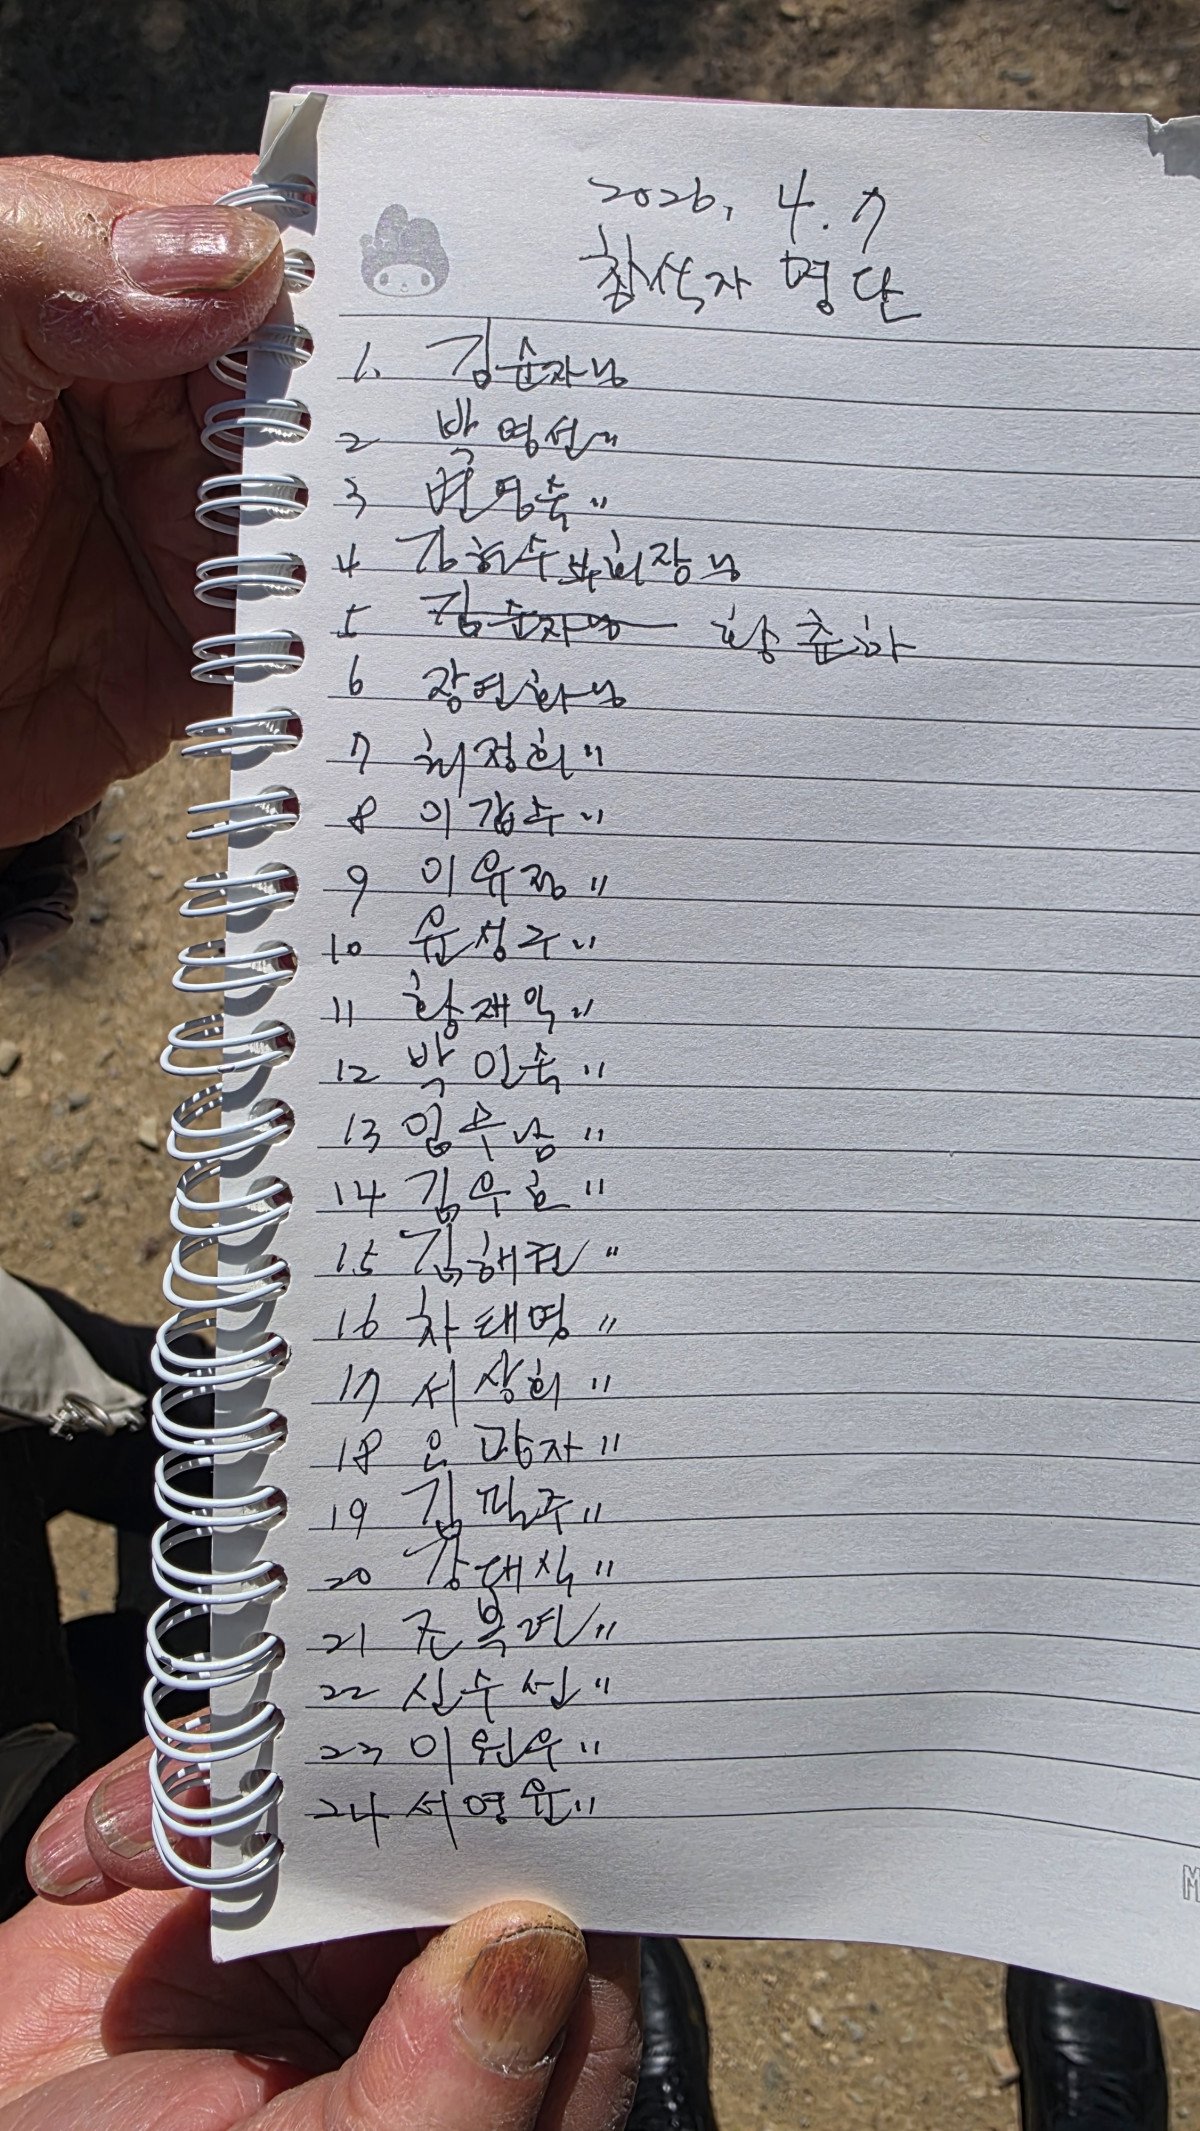 2026. 4. 7
참석자 명단
1. 김순자님
2 박영선 "
3 변영숙 "
4 김현수부회장님
5 김순자님 황춘화
6 장연화님
7 최정희 "
8 이갑수 "
9 이유정 "
10 윤성구 "
11 황재익 "
12 박인숙 "
13 임수남 "
14 김우현 "
15 김해련 "
16 차태영 "
17 서상희 "
18 오광자 "
19 김필주 "
20 강대식 "
21 조복련 "
22 신수선 "
23 이원우 "
24 서영윤 "